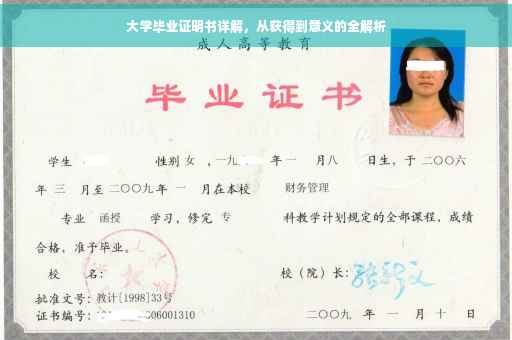 大学毕业证明书详解，从获得到意义的全解析
成人高等教育
毕业证书
学生 性别 女 ，一九 年 一 月八 日生，于 二〇〇六
年 三 月至 二〇〇九 年 一 月在本校 财务管理
专业 函授 学习，修完 专 科教学计划规定的全部课程，成绩
合格，准予毕业。
校 名： 校（院）长：
批准文号：教计[1998]33号
证书编号： 06001310 二〇〇九 年 一 月 十 日